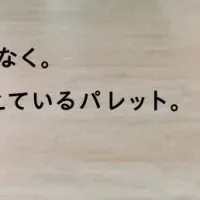 なく。
ているパレット。